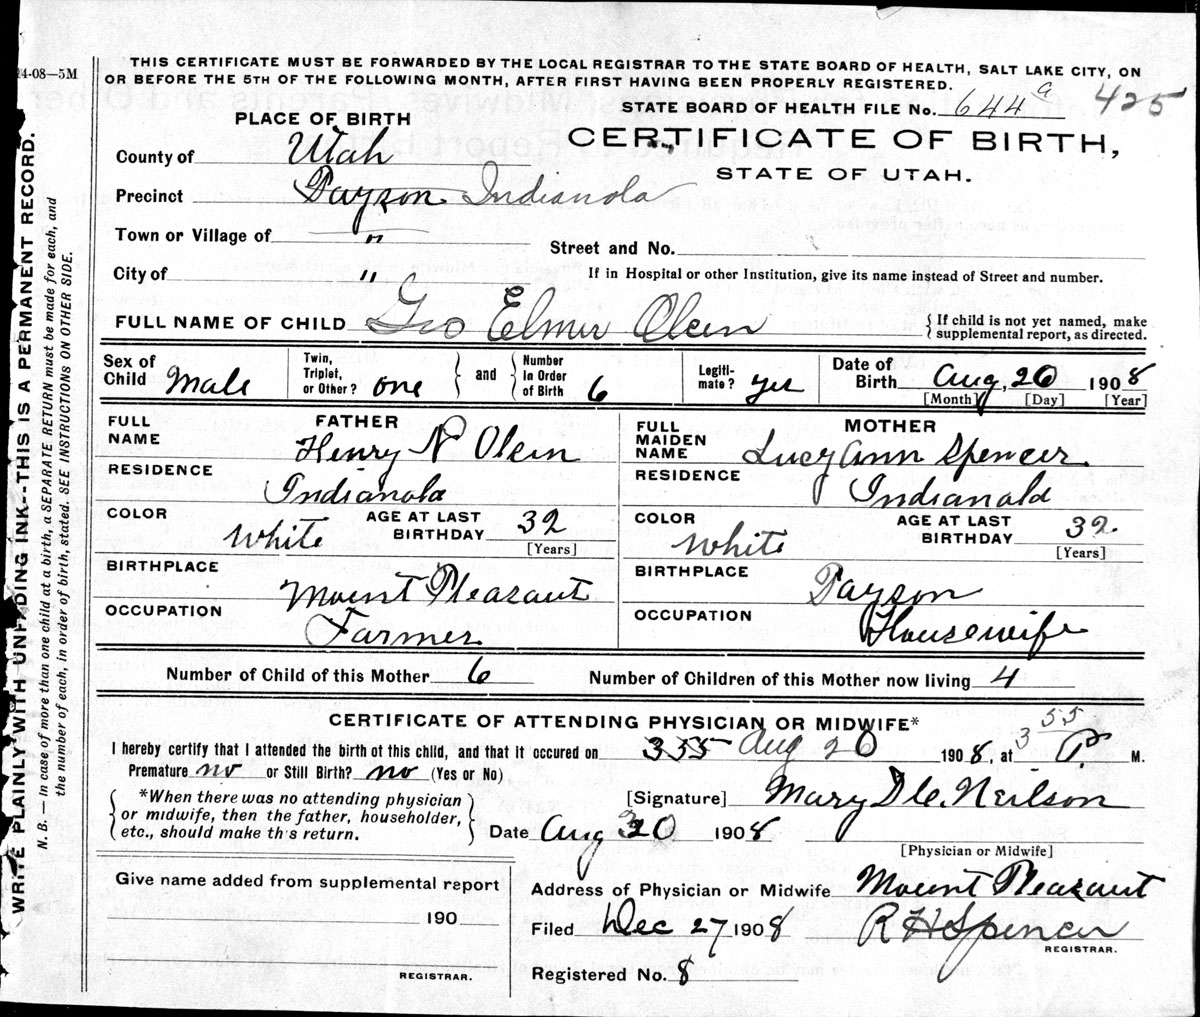 24-08—5M
THIS CERTIFICATE MUST BE FORWARDED BY THE LOCAL REGISTRAR TO THE STATE BOARD OF HEALTH, SALT LAKE CITY, ON
OR BEFORE THE 5TH OF THE FOLLOWING MONTH, AFTER FIRST HAVING BEEN PROPERLY REGISTERED.
STATE BOARD OF HEALTH FILE No. 644 a 425
PLACE OF BIRTH
CERTIFICATE OF BIRTH,
STATE OF UTAH.
County of Utah
Precinct Payson Indianola
Town or Village of "
Street and No.
City of "
If in Hospital or other Institution, give its name instead of Street and number.
FULL NAME OF CHILD Geo Elmer Olsen
{ If child is not yet named, make
supplemental report, as directed.
Sex of Child Male
Twin, Triplet, or Other? one } and { Number In Order of Birth 6
Legiti-mate? yes
Date of Birth Aug, 20 1908
[Month] [Day] [Year]
FULL NAME FATHER
Henry N Olsen
FULL MAIDEN NAME MOTHER
Lucy Ann Spencer
RESIDENCE Indianola
RESIDENCE Indianola
COLOR White AGE AT LAST BIRTHDAY 32 [Years]
COLOR White AGE AT LAST BIRTHDAY 32 [Years]
BIRTHPLACE Mount Pleasant
BIRTHPLACE Payson
OCCUPATION Farmer
OCCUPATION Housewife
Number of Child of this Mother 6 Number of Children of this Mother now living 4
CERTIFICATE OF ATTENDING PHYSICIAN OR MIDWIFE*
I hereby certify that I attended the birth of this child, and that it occured on 355 Aug 20 1908, at 3 55 P. M.
Premature no or Still Birth? no (Yes or No)
{ *When there was no attending physician
or midwife, then the father, householder,
etc., should make this return. }
[Signature] Mary D C. Neilson
Date Aug 20 1908
[Physician or Midwife]
Give name added from supplemental report
190
REGISTRAR.
Address of Physician or Midwife Mount Pleasant
Filed Dec 27 1908 R H Spencer
REGISTRAR.
Registered No. 8
WRITE PLAINLY WITH UNFADING INK--THIS IS A PERMANENT RECORD.
N. B.—In case of more than one child at a birth, a SEPARATE RETURN must be made for each, and
the number of each, in order of birth, stated. SEE INSTRUCTIONS ON OTHER SIDE.